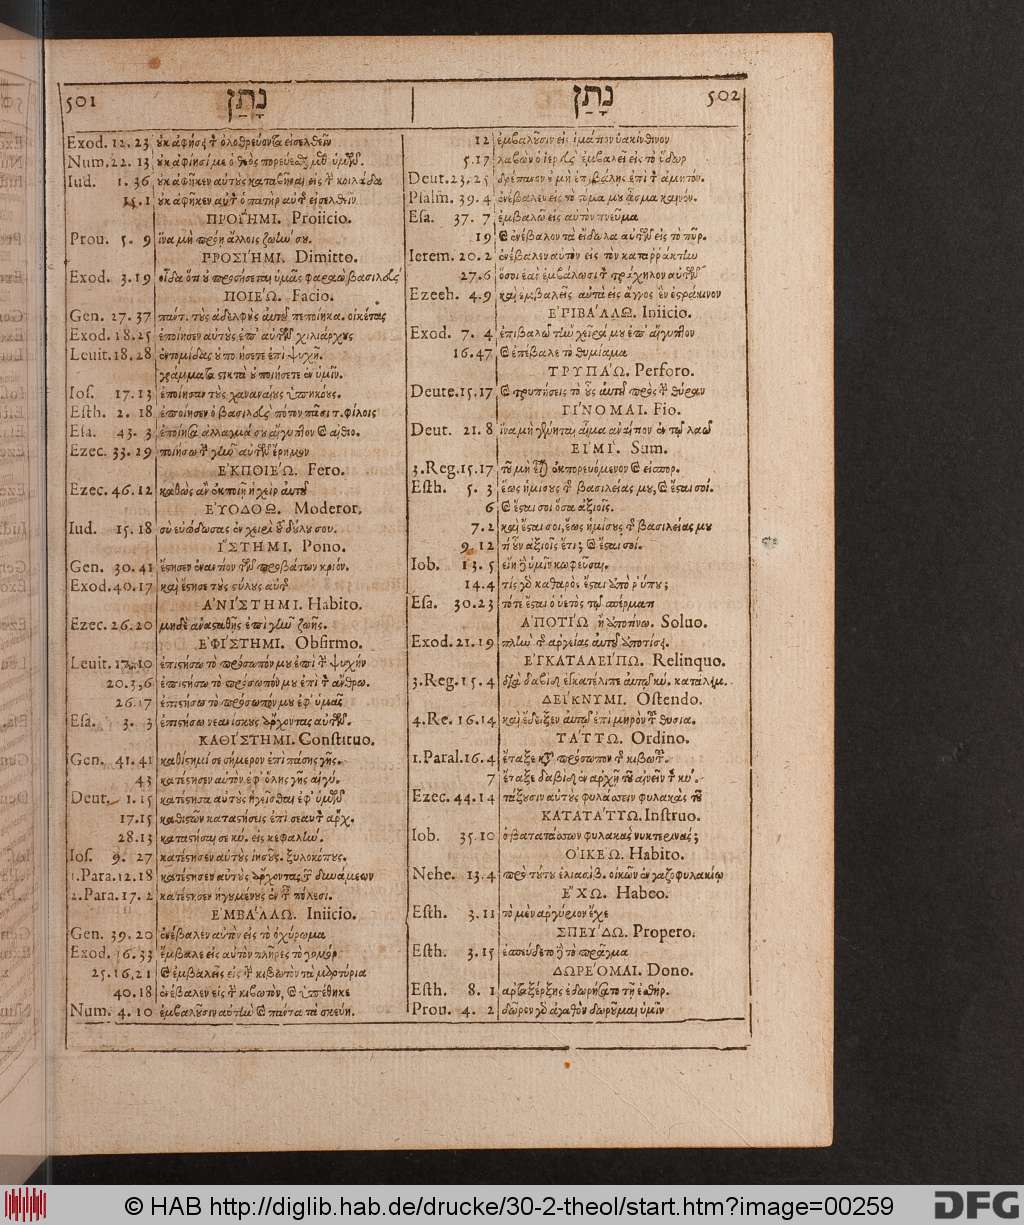 501 נָתַן
Exod. 12. 23 ὐκ ἀφήσει τ ὀλοθρεύοντα εἰσελθεῖν
Num. 22. 13 ὐκ ἀφίησί με ὁ θεὸς πορεύεσθαι μεθ᾽ ὑμῶν.
Iud. 1. 36 ὐκ ἀφῆκεν αὐτὺς καταβῆναι εἰς τ κοιλάδα
15. 1 ὐκ ἀφῆκεν αὐτ ὁ πατὴρ αὐτ εἰσελθεῖν.
ΠΡΟΪΗΜΙ. Proiicio.
Prou. 5. 9 ἵνα μὴ πρόῃ ἄλλοις ζωὴν σου.
ΠΡΟΣΙΉΜΙ. Dimitto.
Exod. 3. 19 οἶδα ὅτι ὐ προήσεται ὑμᾶς φαραὼ βασιλεὺς
ΠΟΙΕΏ. Facio.
Gen. 27. 37 πάντ. τὺς ἀδελφὺς αὐτοῦ πεποίηκα. οἰκέτας
Exod. 18. 25 ἐποίησεν αὐτὺς ἐπ᾽ αὐτῶν χιλιάρχυς
Leuit. 18. 28 ἐντομίδας ὐ ποιήσετε ἐπὶ ψυχῇ.
γράμματα στικτὰ ὐ ποιήσετε ἐν ὑμῖν.
Ios. 17. 13 ἐποίησαν τὺς χαναναίυς ὑπηκόυς.
Esth. 2. 18 ἐποίησεν ὁ βασιλεὺς πότον πᾶσι τ. φίλοις
Esa. 43. 3 ἐποίησα ἄλλαγμά συ αἴγυπτον καὶ αἰθιο.
Ezec. 33. 29 ποιήσω τ γῆν αὐτῶν ἔρημον
ΕΚΠΟΙΕΏ. Fero.
Ezec. 46. 12 καθὼς ἂν ἐκποιῇ ἡ χεὶρ αὐτοῦ
ΕΥΟΔΟΩ. Moderor.
Iud. 15. 18 σὺ εὐώδωσας ἐν χειρὶ τ δύλυ σου.
ἽΣΤΗΜΙ. Pono.
Gen. 30. 41 ἔστησεν ἐναντίον τῶν προβάτων κριόν.
Exod. 40. 17 καὶ ἔστησε τὺς στύλυς αὐτ
ἈΝΊΣΤΗΜΙ. Habito.
Ezec. 26. 20 μηδὲ ἀνασταθῇς ἐπὶ γῆν ζωῆς.
ἘΦΊΣΤΗΜΙ. Obfirmo.
Leuit. 17. 10 ἐπιστήσω τὸ πρόσωπόν μυ ἐπὶ τ ψυχήν
20. 3, 6 ἐπιστήσω τὸ πρόσωπόν μυ ἐπὶ τ ἄνθρω.
26. 17 ἐπιστήσω τὸ πρόσωπόν μυ ἐφ᾽ ὑμᾶς
Esa. 3. 3 ἐπιστήσω νεανίσκυς ἄρχοντας αὐτῶν.
ΚΑΘΊΣΤΗΜΙ. Constituo.
Gen. 41. 41 καθίστημί σε σήμερον ἐπὶ πάσης γῆς.
43 κατέστησεν αὐτὸν ἐφ᾽ ὅλης γῆς αἰγύ.
Deut. 1. 15 κατέστησα αὐτὺς ἡγεῖσθαι ἐφ᾽ ὑμῶν
17. 15 καθιστῶν καταστήσεις ἐπὶ σεαυτ ἄρχ.
28. 13 καταστήσαι σε κύ. εἰς κεφαλήν.
Ios. 9. 27 κατέστησεν αὐτὺς ἰησῦς. ξυλοκόπυς.
1. Para. 12. 18 κατέστησεν αὐτὺς ἄρχοντας τ δυνάμεων
2. Para. 17. 2 κατέστησεν ἡγυμένυς ἐν τ πόλεσι.
ἘΜΒΆΛΛΩ. Iniicio.
Gen. 39. 20 ἐνέβαλεν αὐτὸν εἰς τὸ ὀχύρωμα
Exod. 16. 33 ἔμβαλε εἰς αὐτὸν πλῆρες τὸ γομόρ
25. 16, 21 καὶ ἐμβαλεῖς εἰς τ κιβωτὸν τὰ μαρτύρια
40. 18 ἐνέβαλεν εἰς τ κιβωτὸν, καὶ ὑπέθηκε
Num. 4. 10 ἐμβαλῦσιν αὐτὴν καὶ πάντα τὰ σκεύη.
נָתַן 502
12 ἐμβαλῦσιν εἰς ἱμάτιον ὑακίνθινον
5. 17 λαβὼν ὁ ἱερεὺς ἐμβαλεῖ εἰς τὸ ὕδωρ
Deut. 23. 25 δρέπανον ὐ μὴ ἐπιβάλῃς ἐπὶ τ ἀμητόν.
Psalm. 39. 4 ἐνέβαλεν εἰς τὸ στόμα μυ ᾆσμα καινόν.
Esa. 37. 7 ἐμβαλῶ εἰς αὐτὸν πνεῦμα
19 καὶ ἐνέβαλον τὰ εἴδωλα αὐτῶν εἰς τὸ πῦρ.
Ierem. 20. 2 ἐνέβαλεν αὐτὸν εἰς τὸν καταρράκτην
27. 6 ὅσοι ἐὰν ἐμβάλωσι τ τράχηλον αὐτῶν
Ezech. 4. 9 καὶ ἐμβαλεῖς αὐτὰ εἰς ἄγγος ἓν ὀστράκινον
ἘΠΙΒΆΛΛΩ. Iniicio.
Exod. 7. 4 ἐπιβαλῶ τὴν χεῖρά μυ ἐπ᾽ αἴγυπτον
16. 47 καὶ ἐπέβαλε τὸ θυμίαμα
ΤΡΥΠΆΩ. Perforo.
Deute. 15. 17 καὶ τρυπήσεις τὸ ὖς αὐτοῦ πρὸς τ θύραν
ΓΊΝΟΜΑΙ. Fio.
Deut. 21. 8 ἵνα μὴ γένηται αἷμα ἀναίτιον ἐν τῷ λαῷ
ΕἸΜΊ. Sum.
3. Reg. 15. 17 τῦ μὴ εἶναι ἐκπορευόμενον καὶ εἰσπορ.
Esth. 5. 3 ἕως ἡμίσυς τ βασιλείας μυ, καὶ ἔσται σοί.
6 καὶ ἔσται σοι ὅσα ἀξιοῖς.
7. 2 καὶ ἔσται σοι, ἕως ἡμίσυς τ βασιλείας μυ
9. 12 τί ὖν ἀξιοῖς ἔτι; καὶ ἔσται σοί.
Iob. 13. 5 εἴη ὑμῖν κωφεῦσαι.
14. 4 τίς γὰρ καθαρὸς ἔσται ἀπὸ ῥύπυ;
Esa. 30. 23 τότε ἔσται ὁ ὑετὸς τῷ σπέρματι
ἈΠΟΤΊΩ ἢ ἀποτίνω. Soluo.
Exod. 21. 19 πλὴν τ ἀργείας αὐτοῦ ἀποτίσει.
ἘΓΚΑΤΑΛΕΊΠΩ. Relinquo.
3. Reg. 15. 4 διὰ δαβὶδ ἐγκατέλιπε αὐτῷ κύ. κατάλιμ.
ΔΕΊΚΝΥΜΙ. Ostendo.
4. Re. 16. 14 καὶ ἔδειξεν αὐτῷ ἐπὶ μηρὸν τ θυσια.
ΤΆΤΤΩ. Ordino.
1. Paral. 16. 4 ἔταξε κατὰ πρόσωπον τ κιβωτ.
7 ἔταξε δαβὶδ ἐν ἀρχῇ τῦ αἰνεῖν τ κύ.
Ezec. 44. 14 τάξυσιν αὐτὺς φυλάσσειν φυλακὰς τῦ
ΚΑΤΑΤΆΤΤΩ. Instruo.
Iob. 35. 10 ὁ κατατάσσων φυλακὰς νυκτερινάς;
ὈΙΚΈΩ. Habito.
Nehe. 13. 4 πρὸ τύτυ ἐλιασὶβ. οἰκῶν ἐν γαζοφυλακίῳ
ἜΧΩ. Habeo.
Esth. 3. 11 τὸ μὲν ἀργύριον ἔχε
ΣΠΕΎΔΩ. Propero.
Esth. 3. 15 ἐσπεύδετο τὸ πρᾶγμα
ΔΩΡΈΟΜΑΙ. Dono.
Esth. 8. 1 ἀρταξέρξης ἐδωρήσατο τῇ ἐσθήρ.
Prou. 4. 2 δῶρον γὰρ ἀγαθὸν δωρῦμαι ὑμῖν
© HAB http://diglib.hab.de/drucke/30-2-theol/start.htm?image=00259
DFG